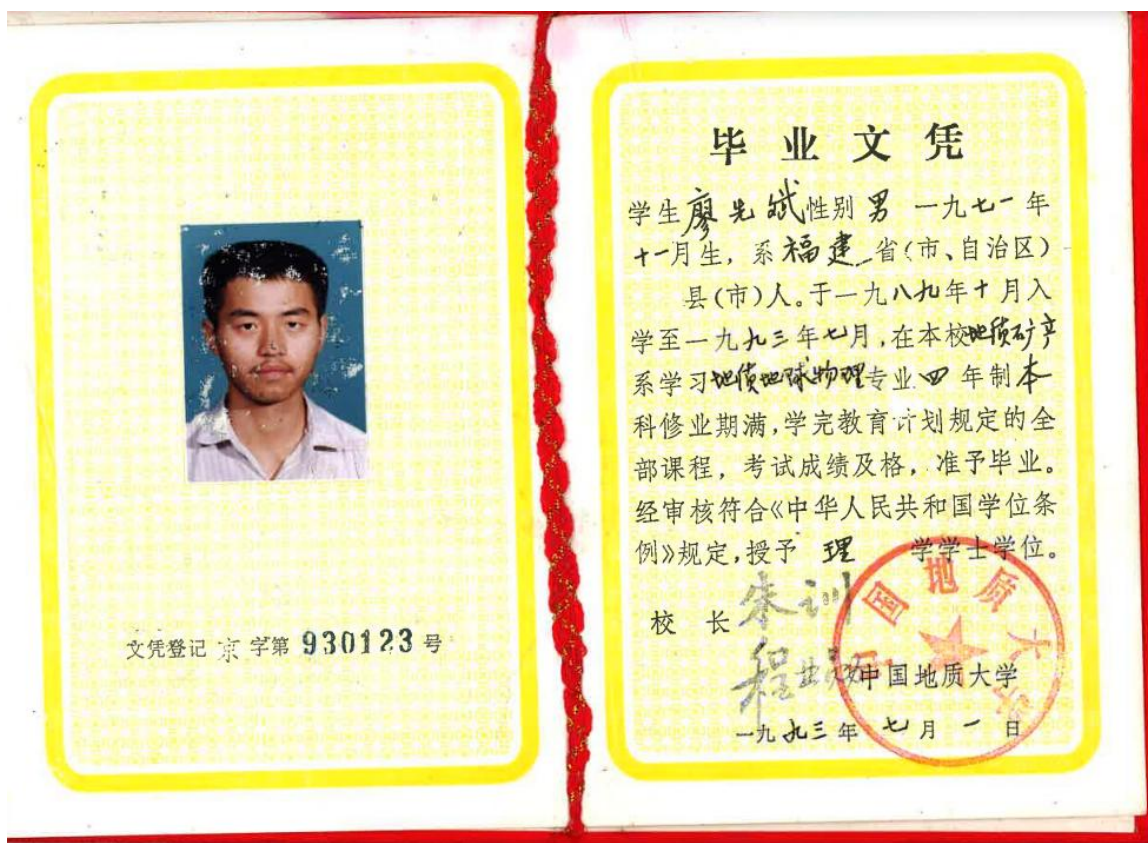 文凭登记 京 字第 930123 号
毕业文凭
学生廖先斌性别 男 一九七一年
十一月生，系福建省(市、自治区)
县(市)人。于一九八九年十月入
学至一九九三年七月，在本校地质矿产
系学习地质地球物理专业四年制本
科修业期满，学完教育计划规定的全
部课程，考试成绩及格，准予毕业。
经审核符合《中华人民共和国学位条
例》规定，授予 理 学学士学位。
校 长 朱训
中国地质大学
一九九三年七月一日
中国地质大学